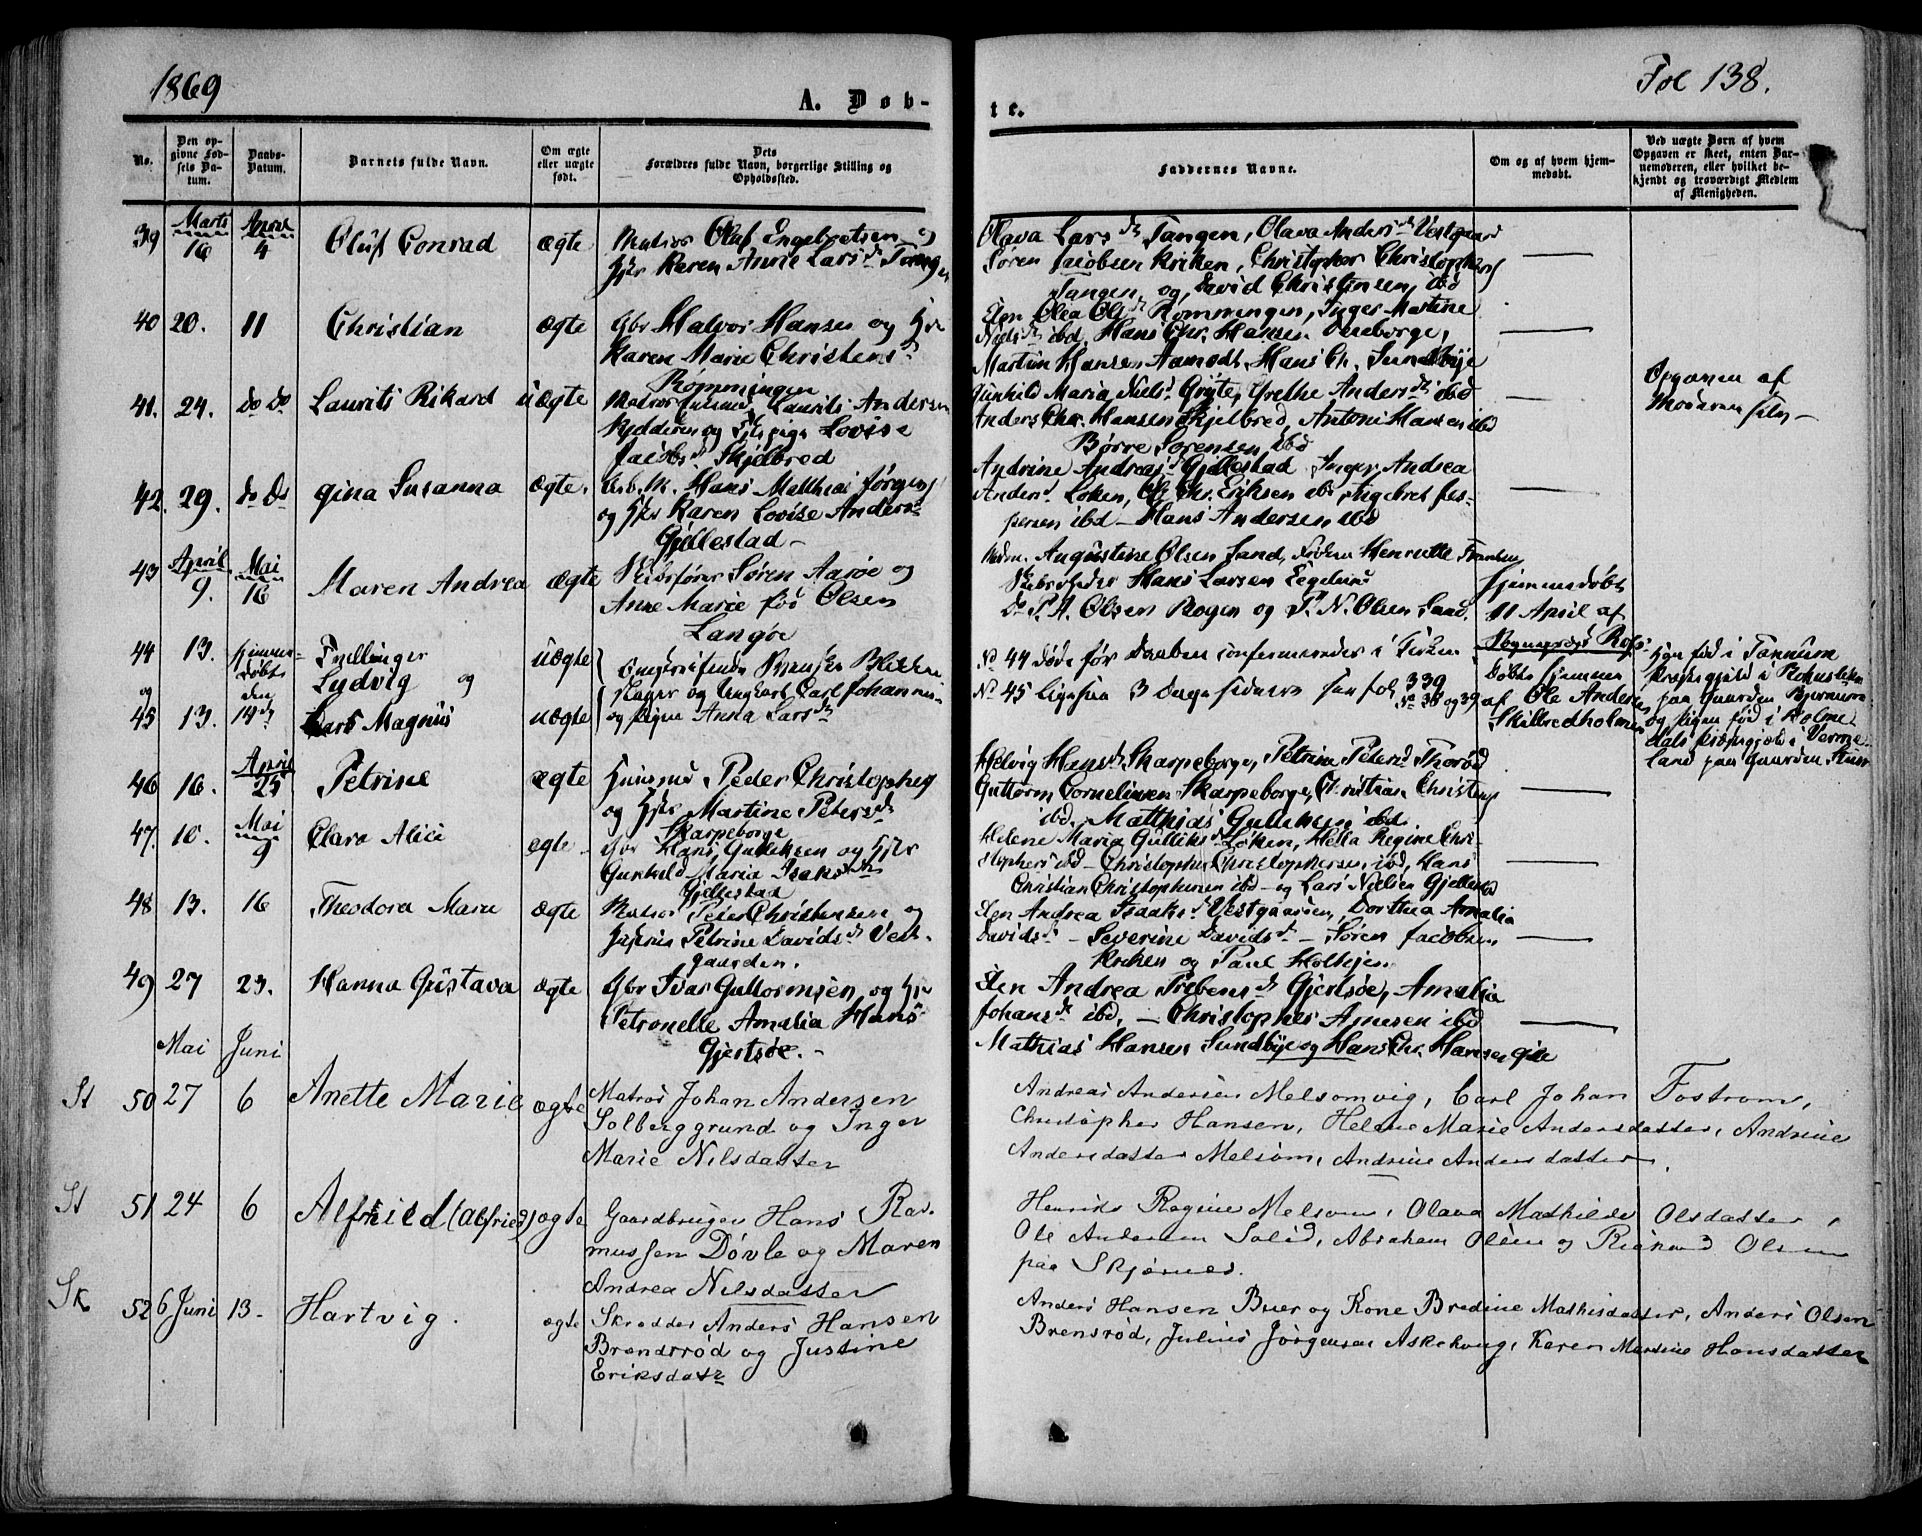 1869
Fol 138.
A. Døb-
te.
No.
Den op-
givne Fød-
sels Da-
tum.
Daabs-
Datum.
Barnets fulde Navn.
Om ægte
eller uægte
født.
Dets
Forældres fulde Navn, borgerlige Stilling og
Opholdssted.
Faddernes Navne.
Om og af hvem hjem-
medøbt.
Ved uægte Børn af hvem
Opgaven er skeet, enten Bar-
nemoderen, eller hvilket be-
kjendt og troværdigt Medlem
af Menigheden.
39 Marts 16 April 4 Oluf Conrad ægte Matros Olaf Engebretsen og
Hstr Karen Anne Lars D. Tangen
Olava Lars D. Tangen, Olava Anders D. Vestgaard
Søren Jacobsen Kriken, Christopher Christophers
Tangen og David Christensen ibd
40 20. 11 Christian ægte Gbr Halvor Hansen og Hstr
Karen Marie Christens D.
Rømmingen
Olea Ols D. Rømmingen, Inger Martine
Niels D. ibd. Hans Chr. Hansen
Martin Hansen Aamodt, Hans Ch. Sundbye
41. 24. do do Laurits Rikard uægte Laurits Andersen
og pige Lovise
Jacobs D. Skjelbred
Gunhild Maria Niels D. Gryte, Grethe Anders D. ibd
Anders Chr. Hansen Skjelbred, Antoni Hansen ibd
Børre Sørensen ibd
Opgaven af
Moderen selv
42. 29. do do Gina Susanna ægte. Arb. M. Hans Matthias Jørgens
og Hstr Karen Lovise Anders
Gjellestad
Andrine Andreas D. Gjellestad Inger Andrea
Anders D. Løken, Ol. Chr. Eriksen ibd Engebret Jes-
persen ibd - Hans Andersen ibd
43 April 9. Mai 16 Maren Andrea ægte Skibsfører Søren Aarøe og
Anne Marie fød Olsen
Langøe
Augustine Olsen Sand, Henriette
Hans Larsen
P. A. Olsen Rogen og P. N. Olsen Sand.
Hjemmedøbt
11 April af
Sogneprest
44 13. hjemme-
døbt
den
14de
Tvillinger
Lydvig og
uægte
og
45 13. Lars Magnus uægte
Svenske
og Ungkarl Carl Johannes
og pigen Anna Lars D.
No 44 døde før Daaben confermeredes i Kirken
No 45 ligesaa 3 Dage sidenere see fol 339
No 38 og 39
Døbt hjemme
af Ole Andersen
Skilbredholmen
Han fød i Tannum
præstegjeld i
paa Gaarden
og pigen fød i Holme-
dals præstegjeld i Verme-
land paa Gaarden
46 16. April 25 Petrine ægte Huusmd Peder Christophers
og Hstr Martine Peters D.
Skarpeborge
Hedvig Hans D. Skarpeborge, Petrine Peters D. Thorød
Guttorm Corneliussen Skarpeborge, Christian Christens
ibd. Matthias Gulliksen ibd
47. 10. Mai 9 Clara Alice ægte Gbr Hans Gulliksen og Hstr
Gunhild Maria Isaks D.
Gjellestad
Helene Maria Gulliks D. Løken, Hella Regine Chri-
stophers ibd - Christopher Christophersen ibd, Hans
Christian Christophersen ibd - og Lars Nielsen Gjellestad
48 13. 16 Theodora Marie ægte Matros Peter Christensen og
Hustru Petrine Davids D. Vest-
gaarden.
Andrea Isaaks D. Vestgaarden, Dorthea Amalia
Davids D. - Severine Davids D. - Søren Jacobsen
Kriken og Paul
49 27 23. Hanna Gustava ægte Gbr Ivar Guttormsen og Hstr
Petronelle Amalia Hans
Gjertsøe.
Andrea Prebens D. Gjertsøe, Amalia
Johans D. ibd. - Christopher Arnesen ibd
Mathias Hansen Sundbye og Hans Chr. Hansen
Mai Juni
St 50 27 6 Anette Marie ægte Matros Johan Andersen
Solberggrund og Inger
Marie Nilsdatter
Andreas Andersen Melsomvig, Carl Johan Fostrom,
Christopher Hansen, Helene Marie Andersdatter, Andrine
Andersdatter Melsom, Andrine Andersdatter.
St 51 24 6 Alfhild (Alfried) ægte Gaardbruger Hans Ras-
mussen Døvle og Maren
Andrea Nilsdatter
Henrikke Regine Melsom, Olava Mathilde Olsdatter,
Ole Andersen Solid, Abraham Olsen og Rikard Olsen
paa Skjærnes.
Sk 52 6 Juni 13. Hartvig. ægte Skrædder Anders Hansen
Brendsrød og Justine
Eriksdatr
Anders Hansen Buer og Kone Bredine Mathisdatter, Anders Olsen
Brensrød, Julius Jørgensen Askehoug, Karen Martine Hansdatter